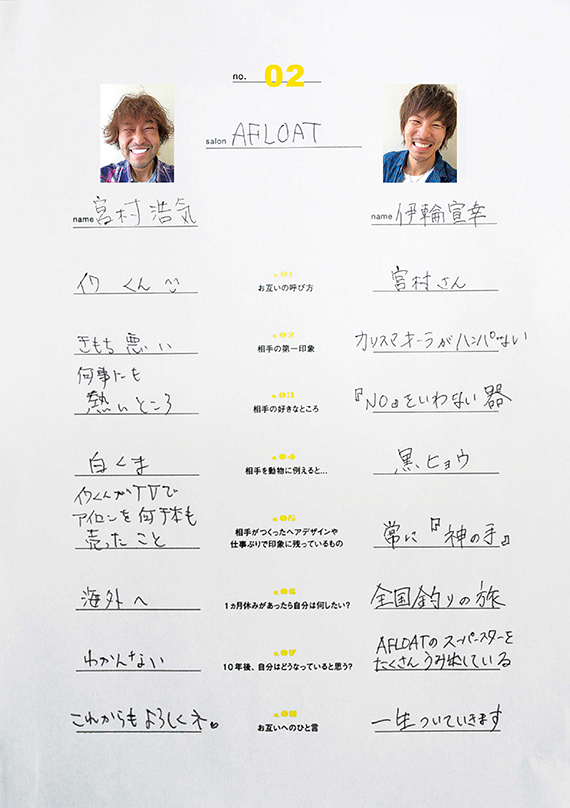 no. 02
salon AFLOAT
name 宮村 浩気
name 伊輪 宣幸
イワ くん
.01
お互いの呼び方
宮村さん
きもち 悪い
.02
相手の第一印象
カリスマオーラがハンパない
何事にも
熱いところ
.03
相手の好きなところ
『NO』をいわない器
白くま
.04
相手を動物に例えると…
黒ヒョウ
イワくんがTVで
アイロンを何千本も
売ったこと
.05
相手がつくったヘアデザインや
仕事ぶりで印象に残っているもの
常に『神の手』
海外へ
.06
1ヵ月休みがあったら自分は何したい?
全国釣りの旅
わかんない
.07
10年後、自分はどうなっていると思う?
AFLOATのスーパースターを
たくさんうみ出している
これからもよろしくネ。
.08
お互いへのひと言
一生ついていきます